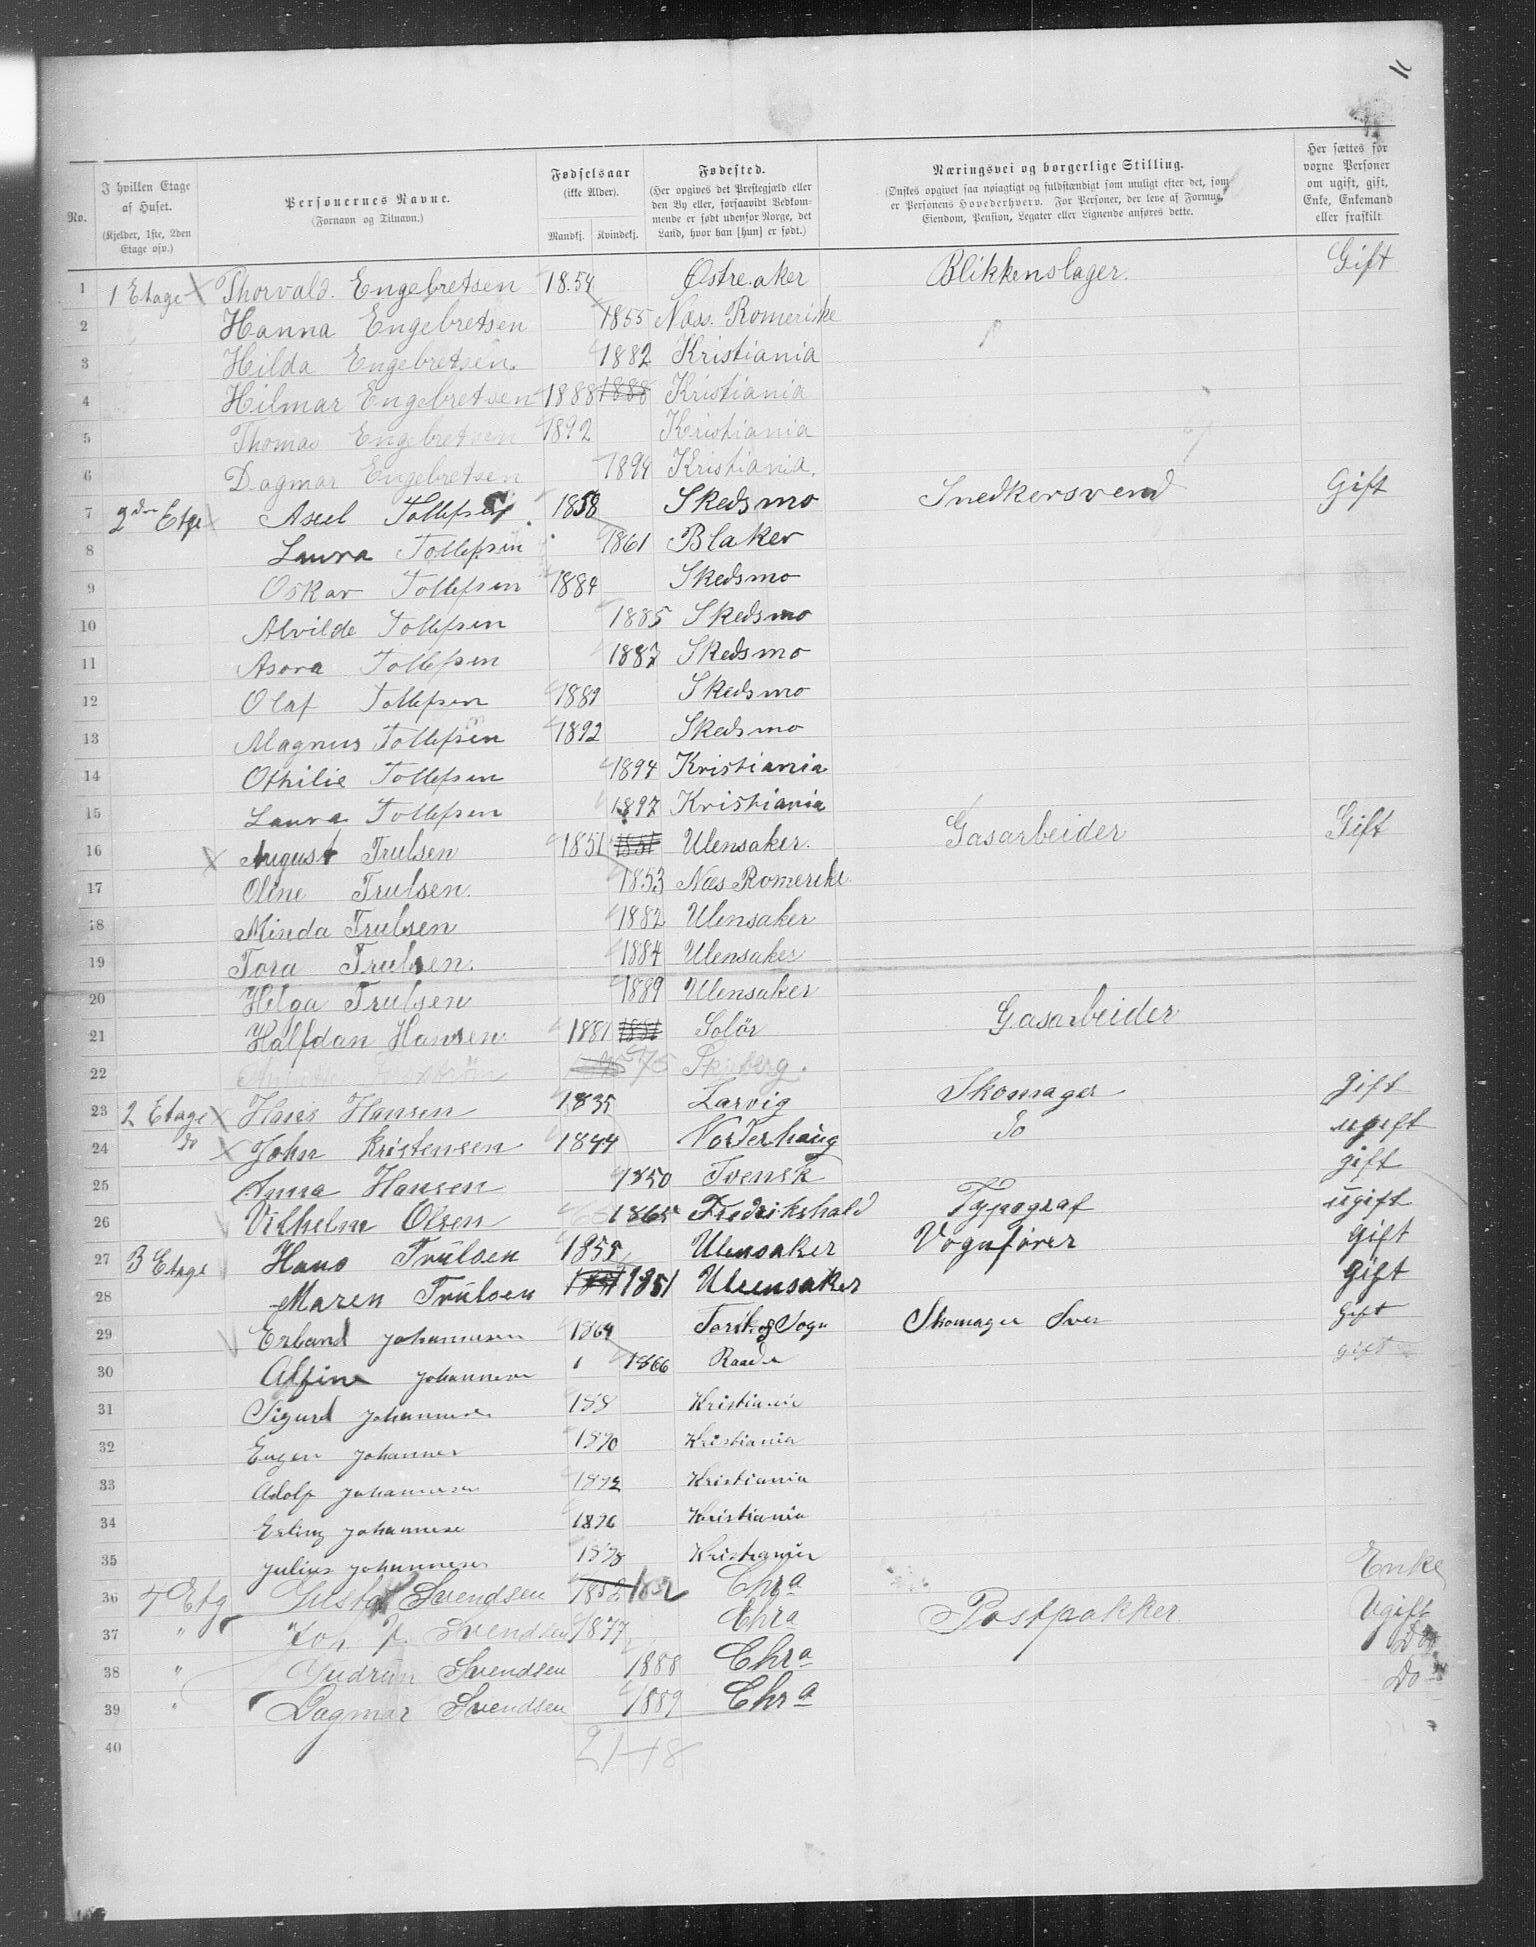 11
No.
I hvilken Etage af Huset. (Kjelder, 1ste, 2den Etage osv.)
Personernes Navne. (Fornavn og Tilnavn.)
Fødselsaar (ikke Alder). Mandkj. Kvindekj.
Fødested. (Her opgives det Prestegjæld eller den By eller, forsaavidt Vedkommende er født udenfor Norge, det Land, hvor han [hun] er født.)
Næringsvei og borgerlige Stilling. (Ønskes opgivet saa nøiagtigt og fuldstændigt som muligt efter det, som er Personens Hovederhverv. For Personer, der leve af Formue, Eiendom, Pension, Legater eller Lignende anføres dette.
Her sættes for voxne Personer om ugift, gift, Enke, Enkemand eller fraskilt
1 1 Etage Thorvald. Engebretsen 1854 Østre.aker Blikkenslager. Gift
2 Hanna Engebretsen 1855 Næss. Romerike
3 Hilda Engebretsen. 1882 Kristiania
4 Hilmar Engebretsen 1888 1888 Kristiania
5 Thomas Engebretsen 1892 Kristiania
6 Dagmar Engebretsen 1894 Kristiania.
7 2den Etge Axel Tollefsen 1858 Skedsmo Snedkersvend Gift
8 Laura Tollefsen 1861 Blaker
9 Oskar Tollefsen 1884 Skedsmo
10 Alvilde Tollefsen 1885 Skedsmo
11 Asora Tollefsen 1887 Skedsmo
12 Olaf Tollefsen 1889 Skedsmo
13 Magnus Tollefsen 1892 Skedsmo
14 Othilie Tollefsen 1894 Kristiania
15 Laura Tollefsen 1897 Kristiania
16 August Trulsen 1851 1851 Ulensaker. Gasarbeider Gift
17 Oline Trulsen. 1853 Næs Romerike
18 Minda Trulsen 1882 Ulensaker
19 Tora Trulsen. 1884 Ulensaker
20 Helga Trulsen 1889 Ulensaker
21 Halfdan Hansen. 1881 1881 Solör Gasarbeider
22 75
23 2 Etage Hans Hansen 1835 Larvig Skomager gift
24 do John Kristensen 1844 Norderhaug do ugift
25 Anna Hansen 1850 Svensk gift
26 Vilhelm Olsen 1865 Fredrikshald Typograf ugift
27 3 Etage Hans Trulsen 1855 Ulensaker Vognfører gift
28 Maren Trulsen 1851 Ulensaker gift
29 Erland Johannesen 1864 Sogn Skomager Sven gift
30 Alfine Johannesen 1866 Raade gift
31 Sigurd Johannesen 188 Kristiania
32 Eugen Johannes 1890 Kristiania
33 Adolf Johannesen 1892 Kristiania
34 Erling Johannese 1896 Kristiania
35 Julius Johannesen 1898 Kristiania
36 4 Etg Svendsen 1852 1852 Chra Enke
37 " Svendsen 1877 Chra Postpakker Ugift
38 " Gudrun Svendsen 1888 Chra Do
39 " Dagmar Svendsen 1889 Chra Do
40 21 18